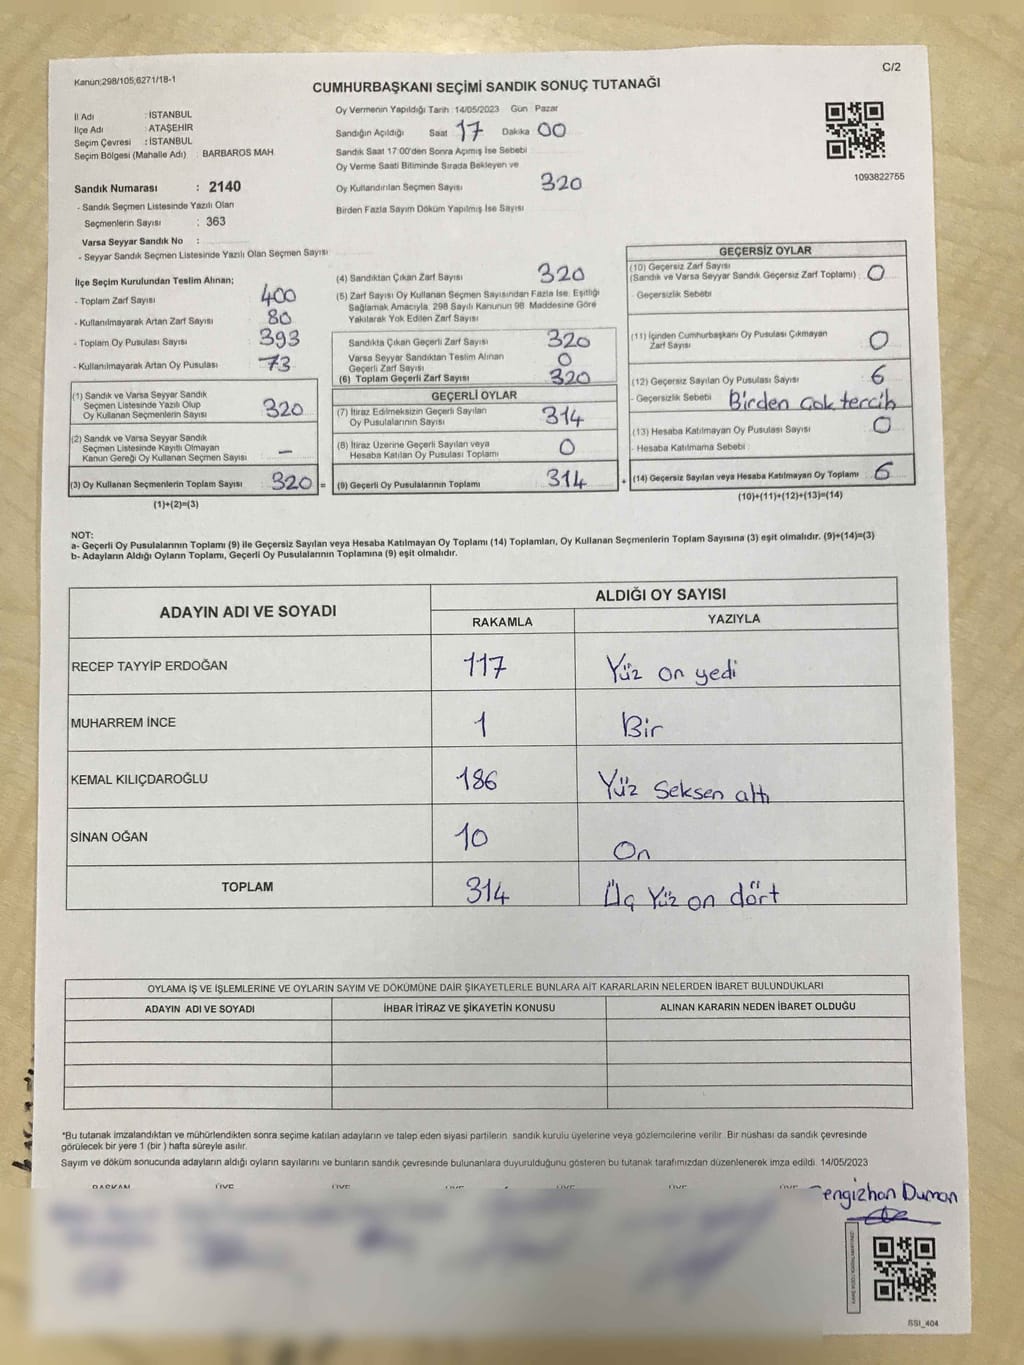 Kanun:298/105,6271/18-1
C/2
CUMHURBAŞKANI SEÇİMİ SANDIK SONUÇ TUTANAĞI
İl Adı : İSTANBUL
İlçe Adı : ATAŞEHİR
Seçim Çevresi : İSTANBUL
Seçim Bölgesi (Mahalle Adı) : BARBAROS MAH.
Sandık Numarası : 2140
- Sandık Seçmen Listesinde Yazılı Olan
Seçmenlerin Sayısı : 363
Varsa Seyyar Sandık No :
- Seyyar Sandık Seçmen Listesinde Yazılı Olan Seçmen Sayısı
Oy Vermenin Yapıldığı Tarih :14/05/2023 Gün Pazar
Sandığın Açıldığı Saat 17 Dakika 00
Sandık Saat 17:00'den Sonra Açımış İse Sebebi
Oy Verme Saati Bitiminde Sırada Bekleyen ve
Oy Kullandırılan Seçmen Sayısı 320
Birden Fazla Sayım Döküm Yapılmış İse Sayısı
1093822755
İlçe Seçim Kurulundan Teslim Alınan;
- Toplam Zarf Sayısı 400
- Kullanılmayarak Artan Zarf Sayısı 80
- Toplam Oy Pusulası Sayısı 393
- Kullanılmayarak Artan Oy Pusulası 73
(1) Sandık ve Varsa Seyyar Sandık
Seçmen Listesinde Yazılı Olup
Oy Kullanan Seçmenlerin Sayısı 320
(2) Sandık ve Varsa Seyyar Sandık
Seçmen Listesinde Kayıtlı Olmayan
Kanun Gereği Oy Kullanan Seçmen Sayısı –
(3) Oy Kullanan Seçmenlerin Toplam Sayısı 320 =
(1)+(2)=(3)
(4) Sandıktan Çıkan Zarf Sayısı 320
(5) Zarf Sayısı Oy Kullanan Seçmen Sayısından Fazla İse, Eşitliği
Sağlamak Amacıyla, 298 Sayılı Kanunun 98. Maddesine Göre
Yakılarak Yok Edilen Zarf Sayısı
Sandıkta Çıkan Geçerli Zarf Sayısı 320
Varsa Seyyar Sandıktan Teslim Alınan
Geçerli Zarf Sayısı 0
(6) Toplam Geçerli Zarf Sayısı 320
GEÇERLİ OYLAR
(7) İtiraz Edilmeksizin Geçerli Sayılan
Oy Pusulalarının Sayısı 314
(8) İtiraz Üzerine Geçerli Sayılan veya
Hesaba Katılan Oy Pusulası Toplamı 0
(9) Geçerli Oy Pusulalarının Toplamı 314 +
GEÇERSİZ OYLAR
(10) Geçersiz Zarf Sayısı
(Sandık ve Varsa Seyyar Sandık Geçersiz Zarf Toplamı) : 0
- Geçersizlik Sebebi
(11) İçinden Cumhurbaşkanı Oy Pusulası Çıkmayan
Zarf Sayısı 0
(12) Geçersiz Sayılan Oy Pusulası Sayısı 6
- Geçersizlik Sebebi Birden çok tercih
(13) Hesaba Katılmayan Oy Pusulası Sayısı 0
- Hesaba Katılmama Sebebi
(14) Geçersiz Sayılan veya Hesaba Katılmayan Oy Toplamı 6
(10)+(11)+(12)+(13)=(14)
NOT:
a- Geçerli Oy Pusulalarının Toplamı (9) ile Geçersiz Sayılan veya Hesaba Katılmayan Oy Toplamı (14) Toplamları, Oy Kullanan Seçmenlerin Toplam Sayısına (3) eşit olmalıdır. (9)+(14)=(3)
b- Adayların Aldığı Oyların Toplamı, Geçerli Oy Pusulalarının Toplamına (9) eşit olmalıdır.
ADAYIN ADI VE SOYADI
ALDIĞI OY SAYISI
RAKAMLA YAZIYLA
RECEP TAYYİP ERDOĞAN 117 Yüz on yedi
MUHARREM İNCE 1 Bir
KEMAL KILIÇDAROĞLU 186 Yüz Seksen altı
SİNAN OĞAN 10 On
TOPLAM 314 Üç Yüz on dört
OYLAMA İŞ VE İŞLEMLERİNE VE OYLARIN SAYIM VE DÖKÜMÜNE DAİR ŞİKAYETLERLE BUNLARA AİT KARARLARIN NELERDEN İBARET BULUNDUKLARI
ADAYIN ADI VE SOYADI İHBAR İTİRAZ VE ŞİKAYETİN KONUSU ALINAN KARARIN NEDEN İBARET OLDUĞU
*Bu tutanak imzalandıktan ve mühürlendikten sonra seçime katılan adayların ve talep eden siyasi partilerin sandık kurulu üyelerine veya gözlemcilerine verilir. Bir nüshası da sandık çevresinde
görülecek bir yere 1 (bir ) hafta süreyle asılır.
Sayım ve döküm sonucunda adayların aldığı oyların sayılarını ve bunların sandık çevresinde bulunanlara duyurulduğunu gösteren bu tutanak tarafımızdan düzenlenerek imza edildi. 14/05/2023
BAŞKAN ÜYE ÜYE ÜYE ÜYE ÜYE ÜYE
Cengizhan Duman
SSI_404